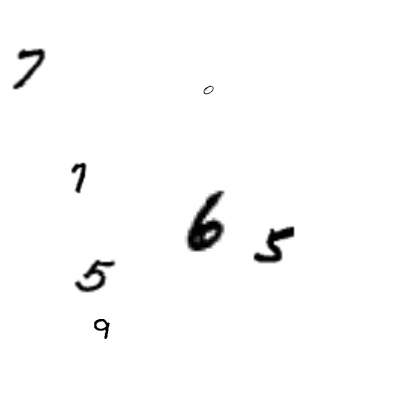 7
0
1
6
5
5
9